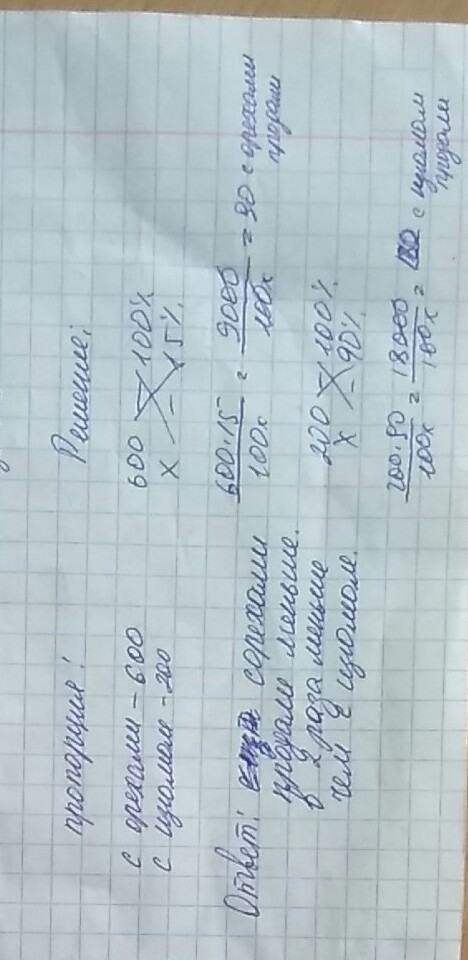 пропорция!
с орехами - 600
с изюмом - 200
Решение:
600 - 100%
х - 15%
600·15 / 100х = 9000 / 100х = 90 с орехами продали
200 - 100%
х - 90%
200·90 / 100х = 18000 / 100х = 180 с изюмом продали
Ответ: с орехами
продали меньше.
в 2 раза меньше
чем с изюмом.